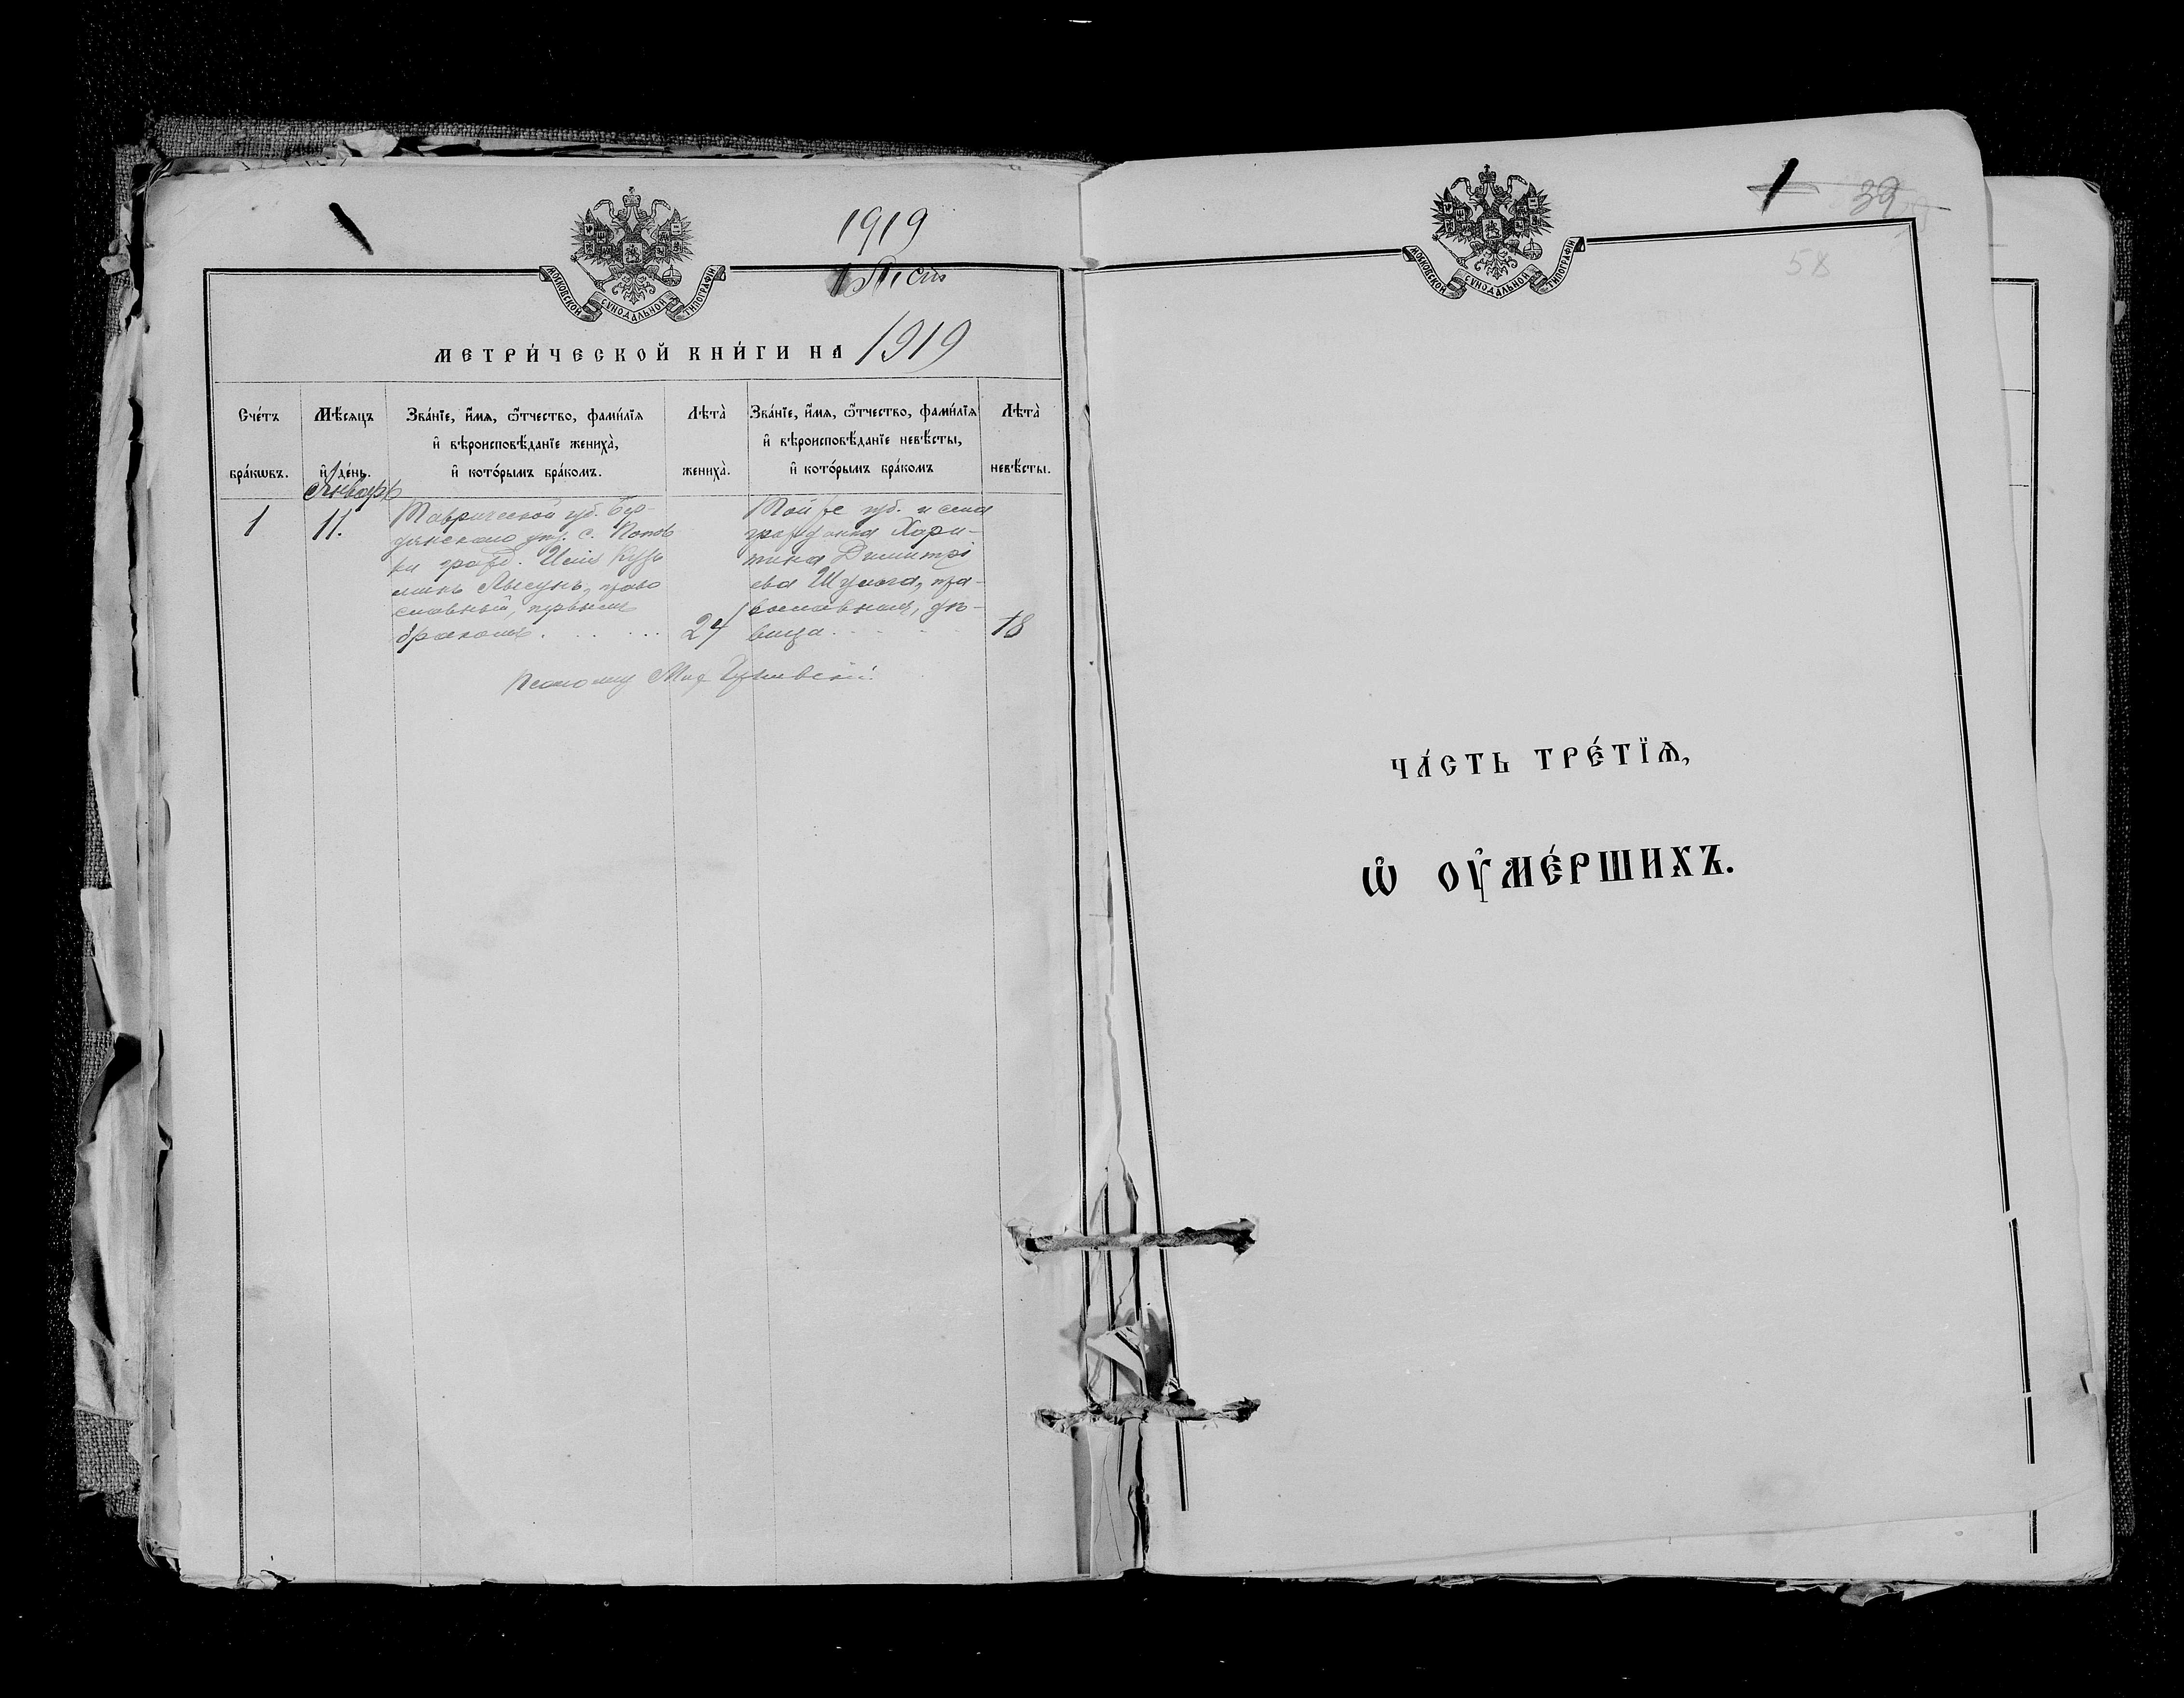 1919
МОСКОВСКОЙ СУНОДАЛЬНОЙ ТИПОГРАФІИ
МЕТРИ́ЧЕСКОЙ КНИ́ГИ НА 1919
Сче́тъ бра́кωвъ.
Мѣ́сяцъ и҆ де́нь.
Зва́нїе, и҆́мя, ѻ҆́тчество, фами́лїя
и҆ вѣроисповѣ́данїе жениха̀,
и҆ кото́рымъ бра́комъ.
Лѣта̀ жениха̀.
Зва́нїе, и҆́мя, ѻ҆́тчество, фами́лїя
и҆ вѣроисповѣ́данїе невѣ́сты,
и҆ кото́рымъ бра́комъ
Лѣта̀ невѣ́сты.
Январь
1
11.
Таврической губ. Бер-
дянскаго уѣз. с. Попов
ки гражд. Кузь
минъ Лысунъ, право
славный, первымъ
бракомъ
24
Той же губ. и села
гражданка Хари-
тина Димитрі
ева Шулога, пра-
вославная, дѣ-
вица
18
Псаломщ.
МОСКОВСКОЙ СУНОДАЛЬНОЙ ТИПОГРАФІИ
39
58
ЧА́СТЬ ТРЕ́ТЇѦ,
Ѡ҆ ОУ҆МЕ́РШИХЪ.